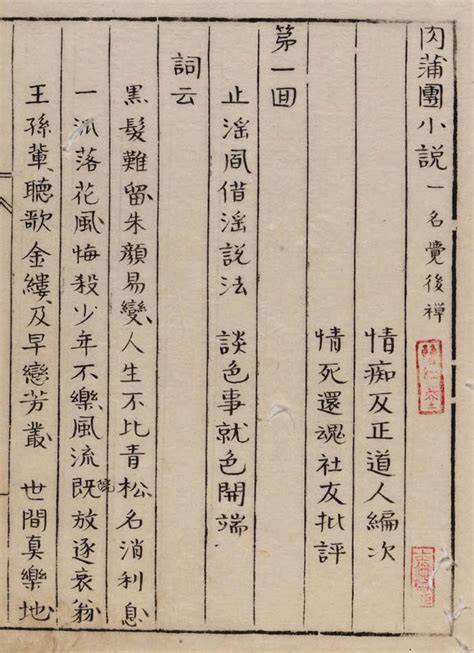 肉蒲團小說 一名覺後禪
情痴反正道人編次
情死還魂社友批評
第一回
止滛風借滛說法 談色事就色開端
詞云
黑髮難留朱顏易變人生不比青松名消利息
一派落花風悔殺少年不樂風流院既放逐衰翁
王孫輩聽歌金縷及早戀芳叢 世間真樂地